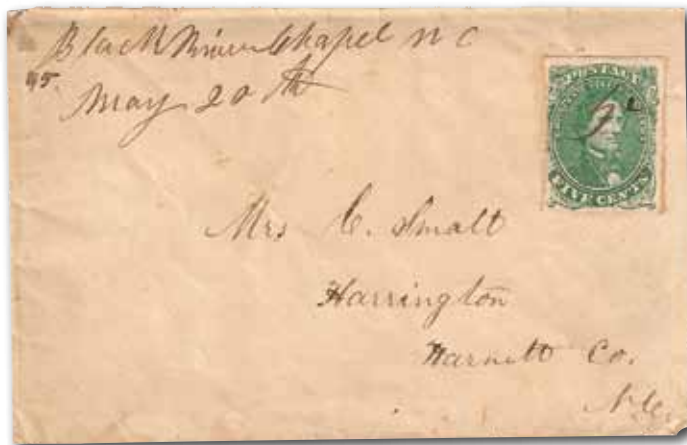 Black River Chapel N C
May 20th
POSTAGE
FIVE CENTS
Mrs C. Small
Harrington
Harnett Co.
N.C.